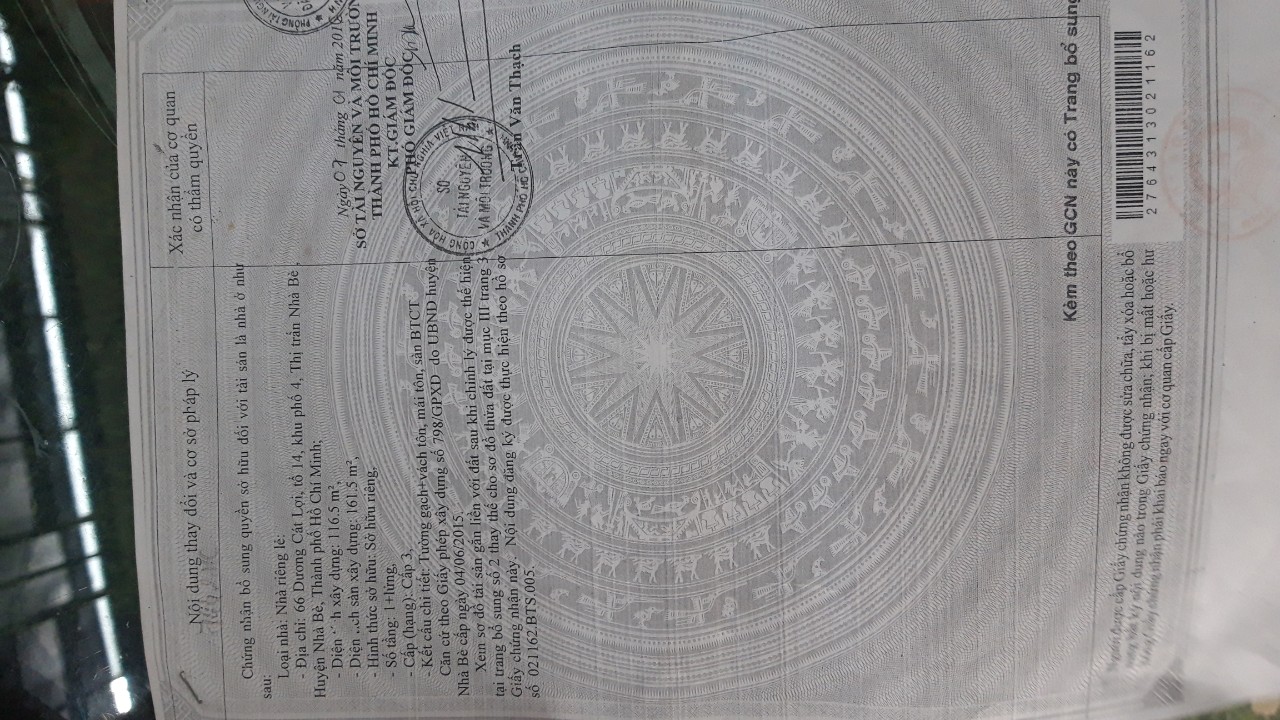 Nội dung thay đổi và cơ sở pháp lý
Xác nhận của cơ quan
có thẩm quyền
Chứng nhận bổ sung quyền sở hữu đối với tài sản là nhà ở như
sau:
Loại nhà: Nhà riêng lẻ.
- Địa chỉ: 66 Dương Cát Lợi, tổ 14, khu phố 4, Thị trấn Nhà Bè ,
Huyện Nhà Bè, Thành phố Hồ Chí Minh;
- Diện h xây dựng: 116.5 m²,
- Diện ch sàn xây dựng: 161.5 m²,
- Hình thức sở hữu: Sở hữu riêng,
- Số tầng: 1+lửng,
- Cấp (hạng): Cấp 3,
- Kết cấu chi tiết: Tường gạch+vách tôn, mái tôn, sàn BTCT
Căn cứ theo Giấy phép xây dựng số 798/GPXD do UBND huyện
Nhà Bè cấp ngày 04/06/2015.
Xem sơ đồ tài sản gắn liền với đất sau khi chỉnh lý được thể hiện
tại trang bổ sung số 2 thay thế cho sơ đồ thửa đất tại mục III trang 3
Giấy chứng nhận này. Nội dung đăng ký được thực hiện theo hồ sơ
số 021162.BTS.005.
Ngày 07 tháng 01 năm 2016
SỞ TÀI NGUYÊN VÀ MÔI TRƯỜN
THÀNH PHỐ HỒ CHÍ MINH
KT.GIÁM ĐỐC
PHÓ GIÁM ĐỐC
CỘNG HÒA XÃ HỘI CHỦ NGHĨA VIỆT
SỞ
TÀI NGUYÊN
VÀ MÔI TRƯỜNG
THÀNH PHỐ HỒ
Trần Văn Thạch
Kèm theo GCN này có Trang bổ sung
được cấp Giấy chứng nhận không được sửa chữa, tẩy xóa hoặc bổ
bất kỳ nội dung nào trong Giấy chứng nhận; khi bị mất hoặc hư
chứng nhận phải khai báo ngay với cơ quan cấp Giấy.
2764313021162